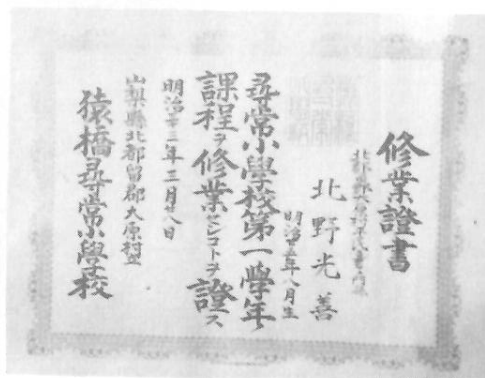 修業證書
北野光善
明治廿五年八月生
尋常小學校第一學年
課程ヲ修業セシコトヲ證ス
明治卅三年三月廿八日
山梨縣北都留郡大原村立
猿橋尋常小學校